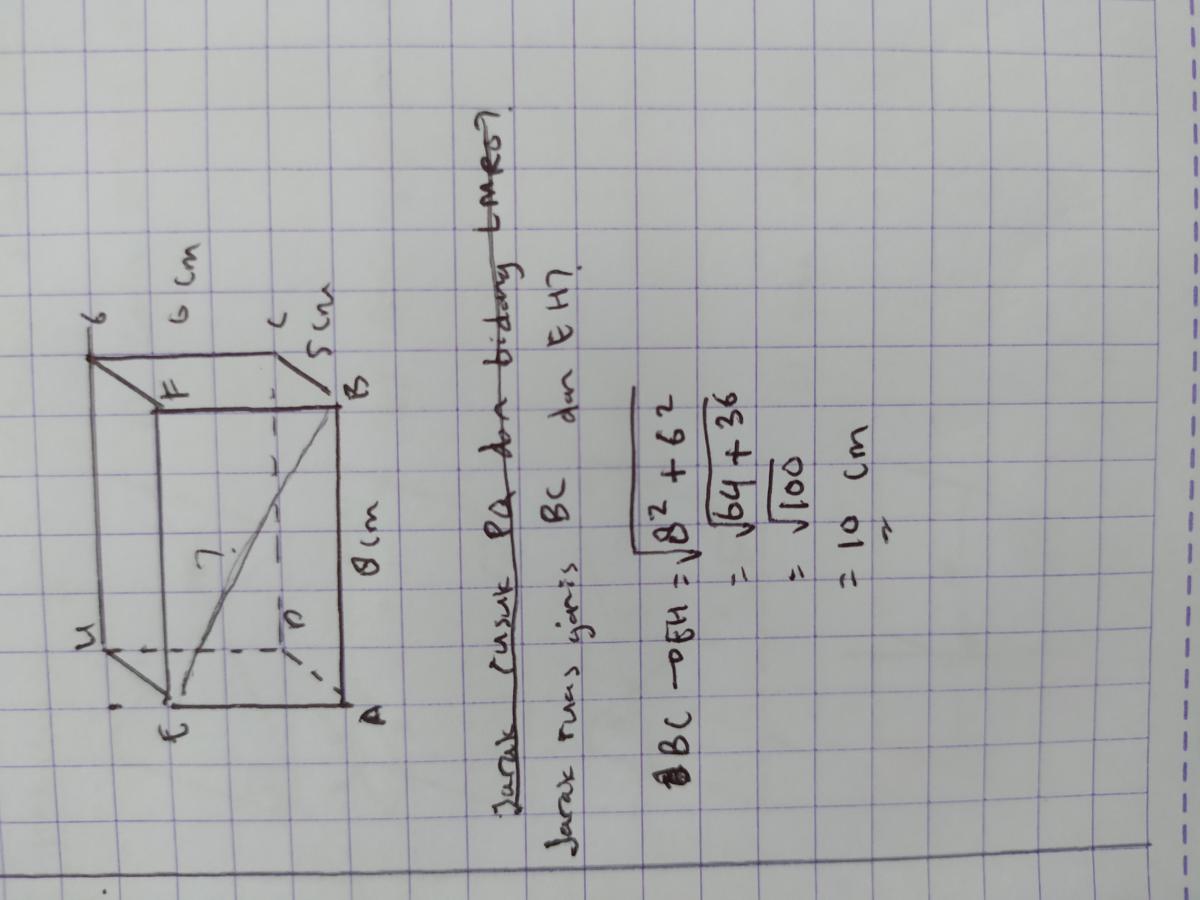 H
G
E
F
6 cm
?
D
C
5 cm
A
B
8 cm
Jarak rusuk PQ dan bidang LMRO?
Jarak ruas garis BC dan EH?
BC → EH = √8² + 6²
= √64 + 36
= √100
= 10 cm